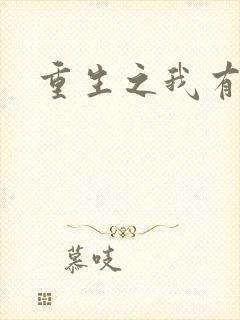 重生之我有
慕吱